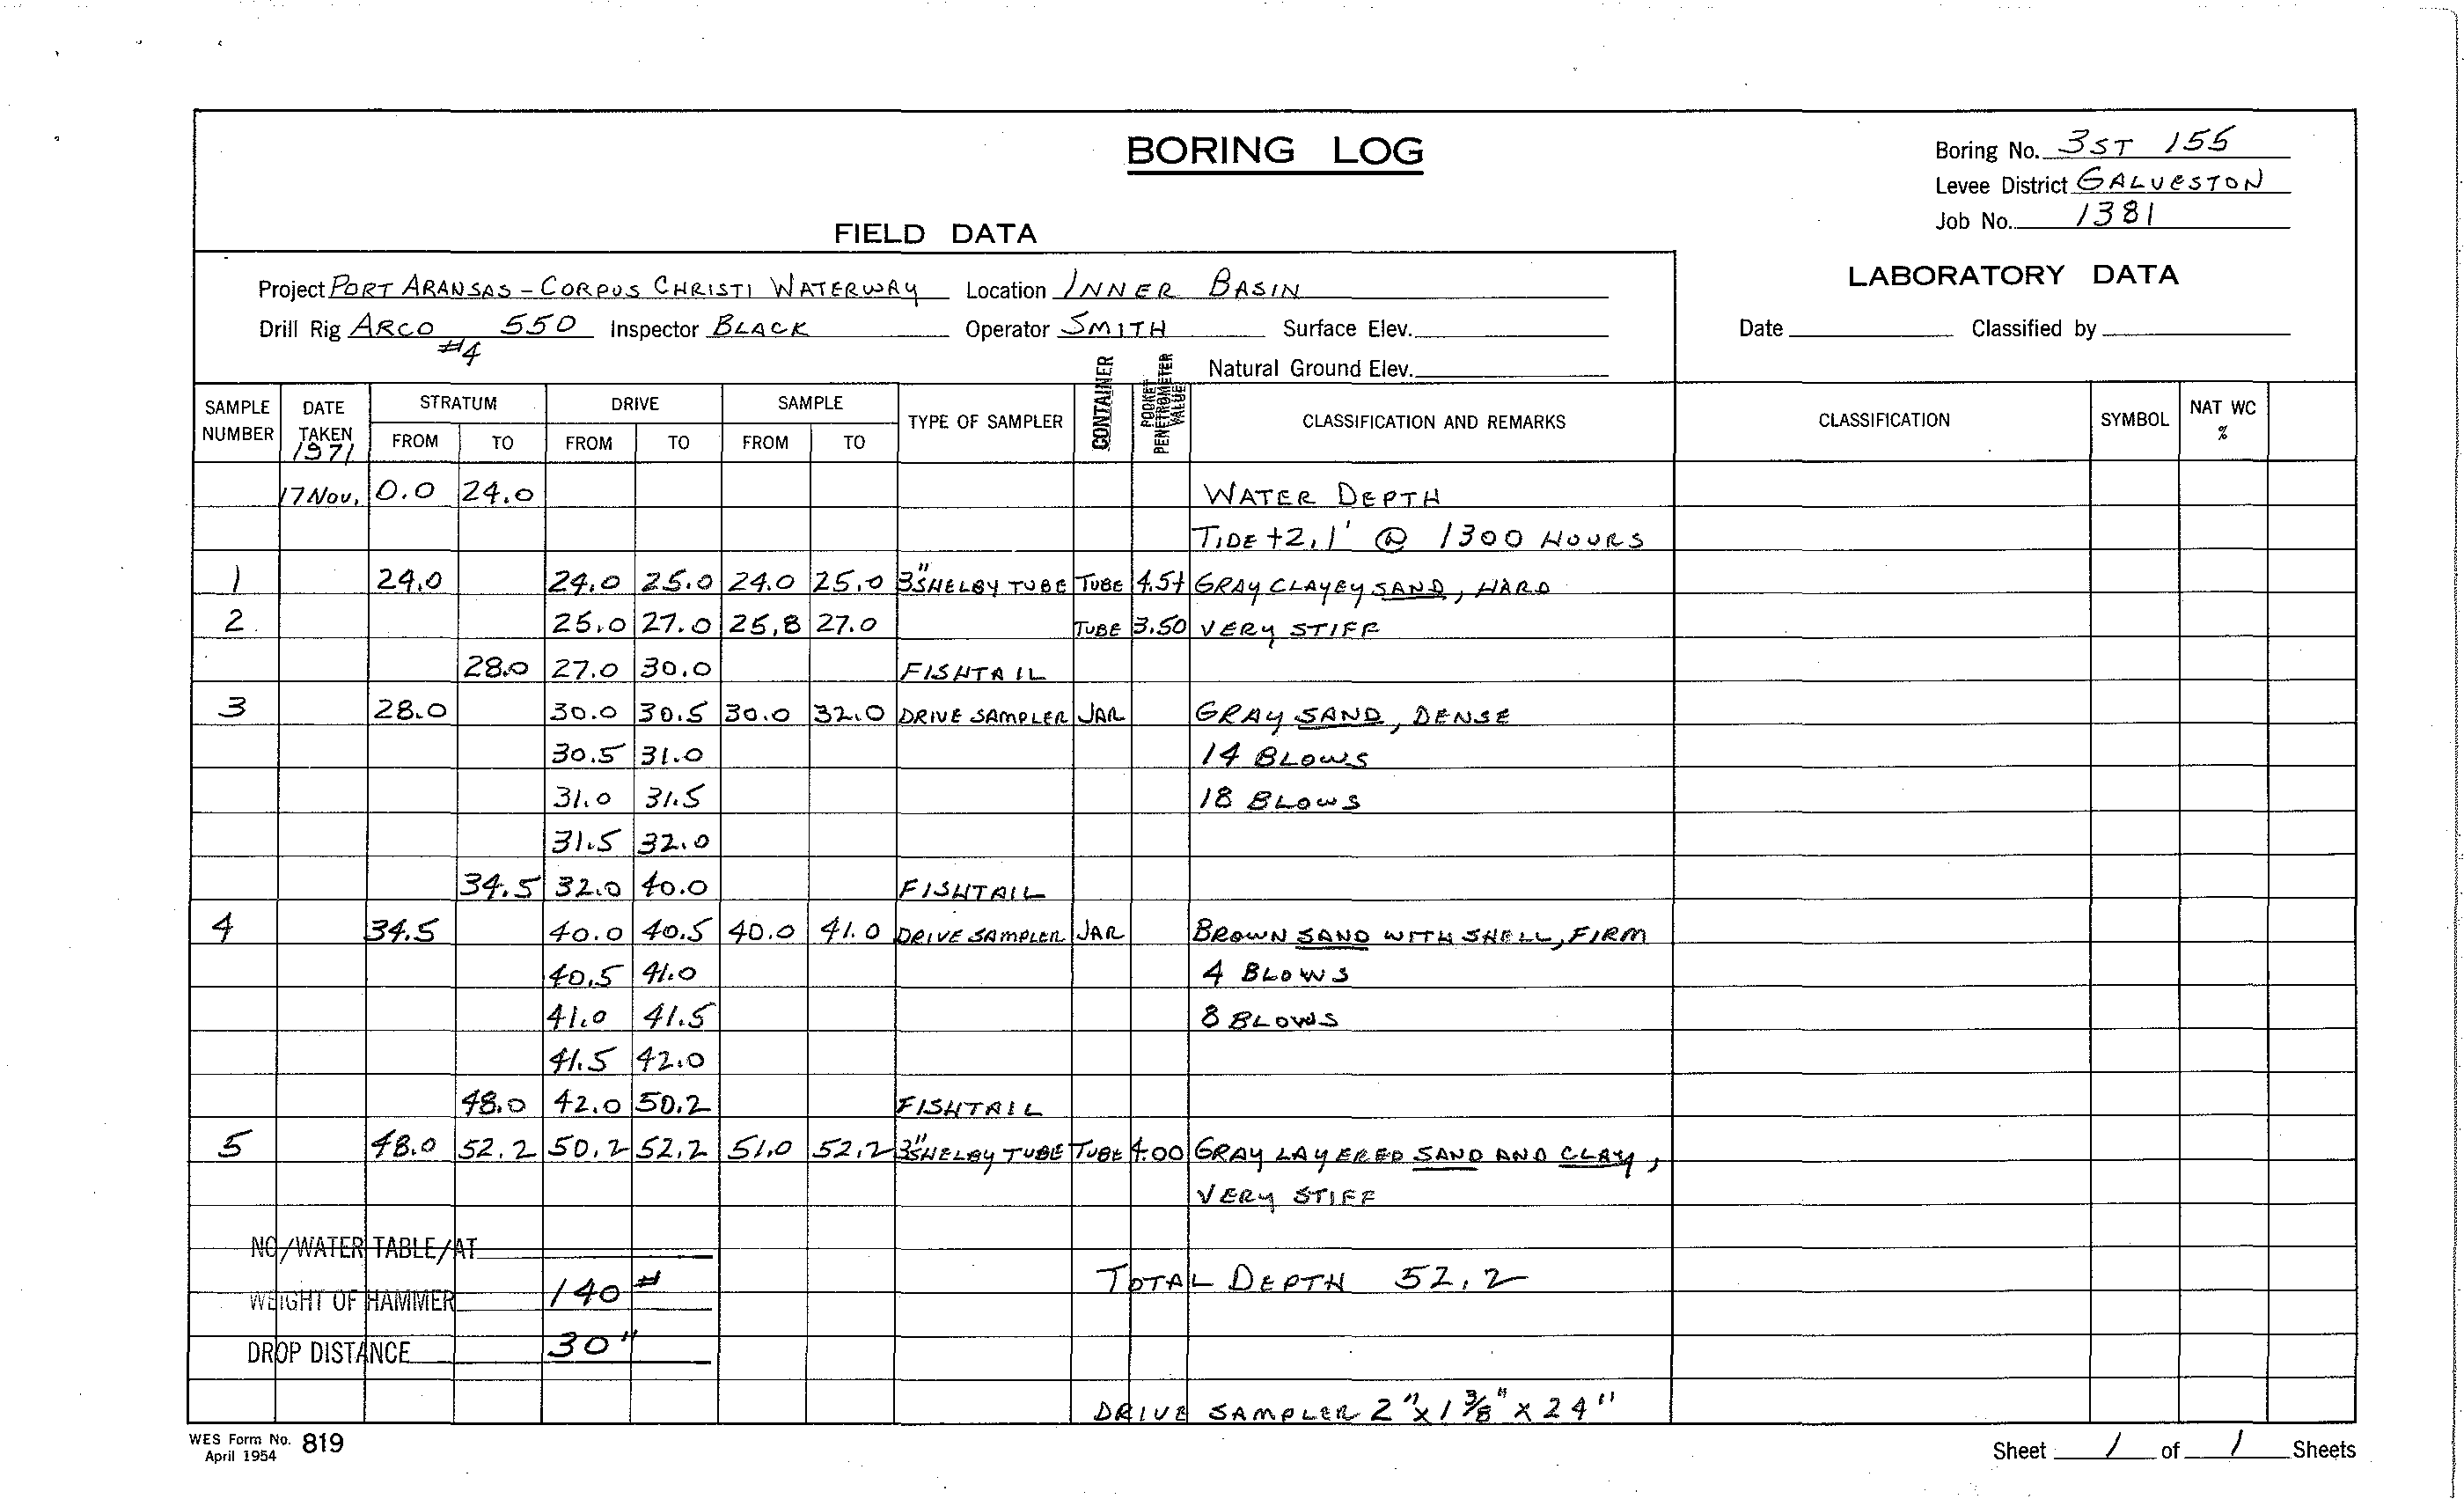 BORING LOG
Boring No. 3ST 155
Levee District GALVESTON
Job No. 1381
FIELD DATA
LABORATORY DATA
Project PORT ARANSAS - CORPUS CHRISTI WATERWAY Location INNER BASIN
Drill Rig ARCO 550 Inspector BLACK Operator SMITH Surface Elev. Date Classified by
#4
Natural Ground Elev.
SAMPLE NUMBER DATE TAKEN 1971 STRATUM FROM TO DRIVE FROM TO SAMPLE FROM TO TYPE OF SAMPLER CONTAINER POCKET PENETROMETER VALUE CLASSIFICATION AND REMARKS CLASSIFICATION SYMBOL NAT WC %
17 Nov. 0.0 24.0 WATER DEPTH
TIDE +2.1' @ 1300 HOURS
1 24.0 24.0 25.0 24.0 25.0 3" SHELBY TUBE TUBE 4.5+ GRAY CLAYEY SAND, HARD
2 25.0 27.0 25.8 27.0 TUBE 3.50 VERY STIFF
28.0 27.0 30.0 FISHTAIL
3 28.0 30.0 30.5 30.0 32.0 DRIVE SAMPLER JAR GRAY SAND, DENSE
30.5 31.0 14 BLOWS
31.0 31.5 18 BLOWS
31.5 32.0
34.5 32.0 40.0 FISHTAIL
4 34.5 40.0 40.5 40.0 41.0 DRIVE SAMPLER JAR BROWN SAND WITH SHELL, FIRM
40.5 41.0 4 BLOWS
41.0 41.5 8 BLOWS
41.5 42.0
48.0 42.0 50.2 FISHTAIL
5 48.0 52.2 50.2 52.2 51.0 52.2 3" SHELBY TUBE TUBE 4.00 GRAY LAYERED SAND AND CLAY,
VERY STIFF
NO/WATER TABLE/AT
WEIGHT OF HAMMER 140# TOTAL DEPTH 52.2
DROP DISTANCE 30"
DRIVE SAMPLER 2" x 1 3/8" x 24"
WES Form No. 819
April 1954
Sheet 1 of 1 Sheets